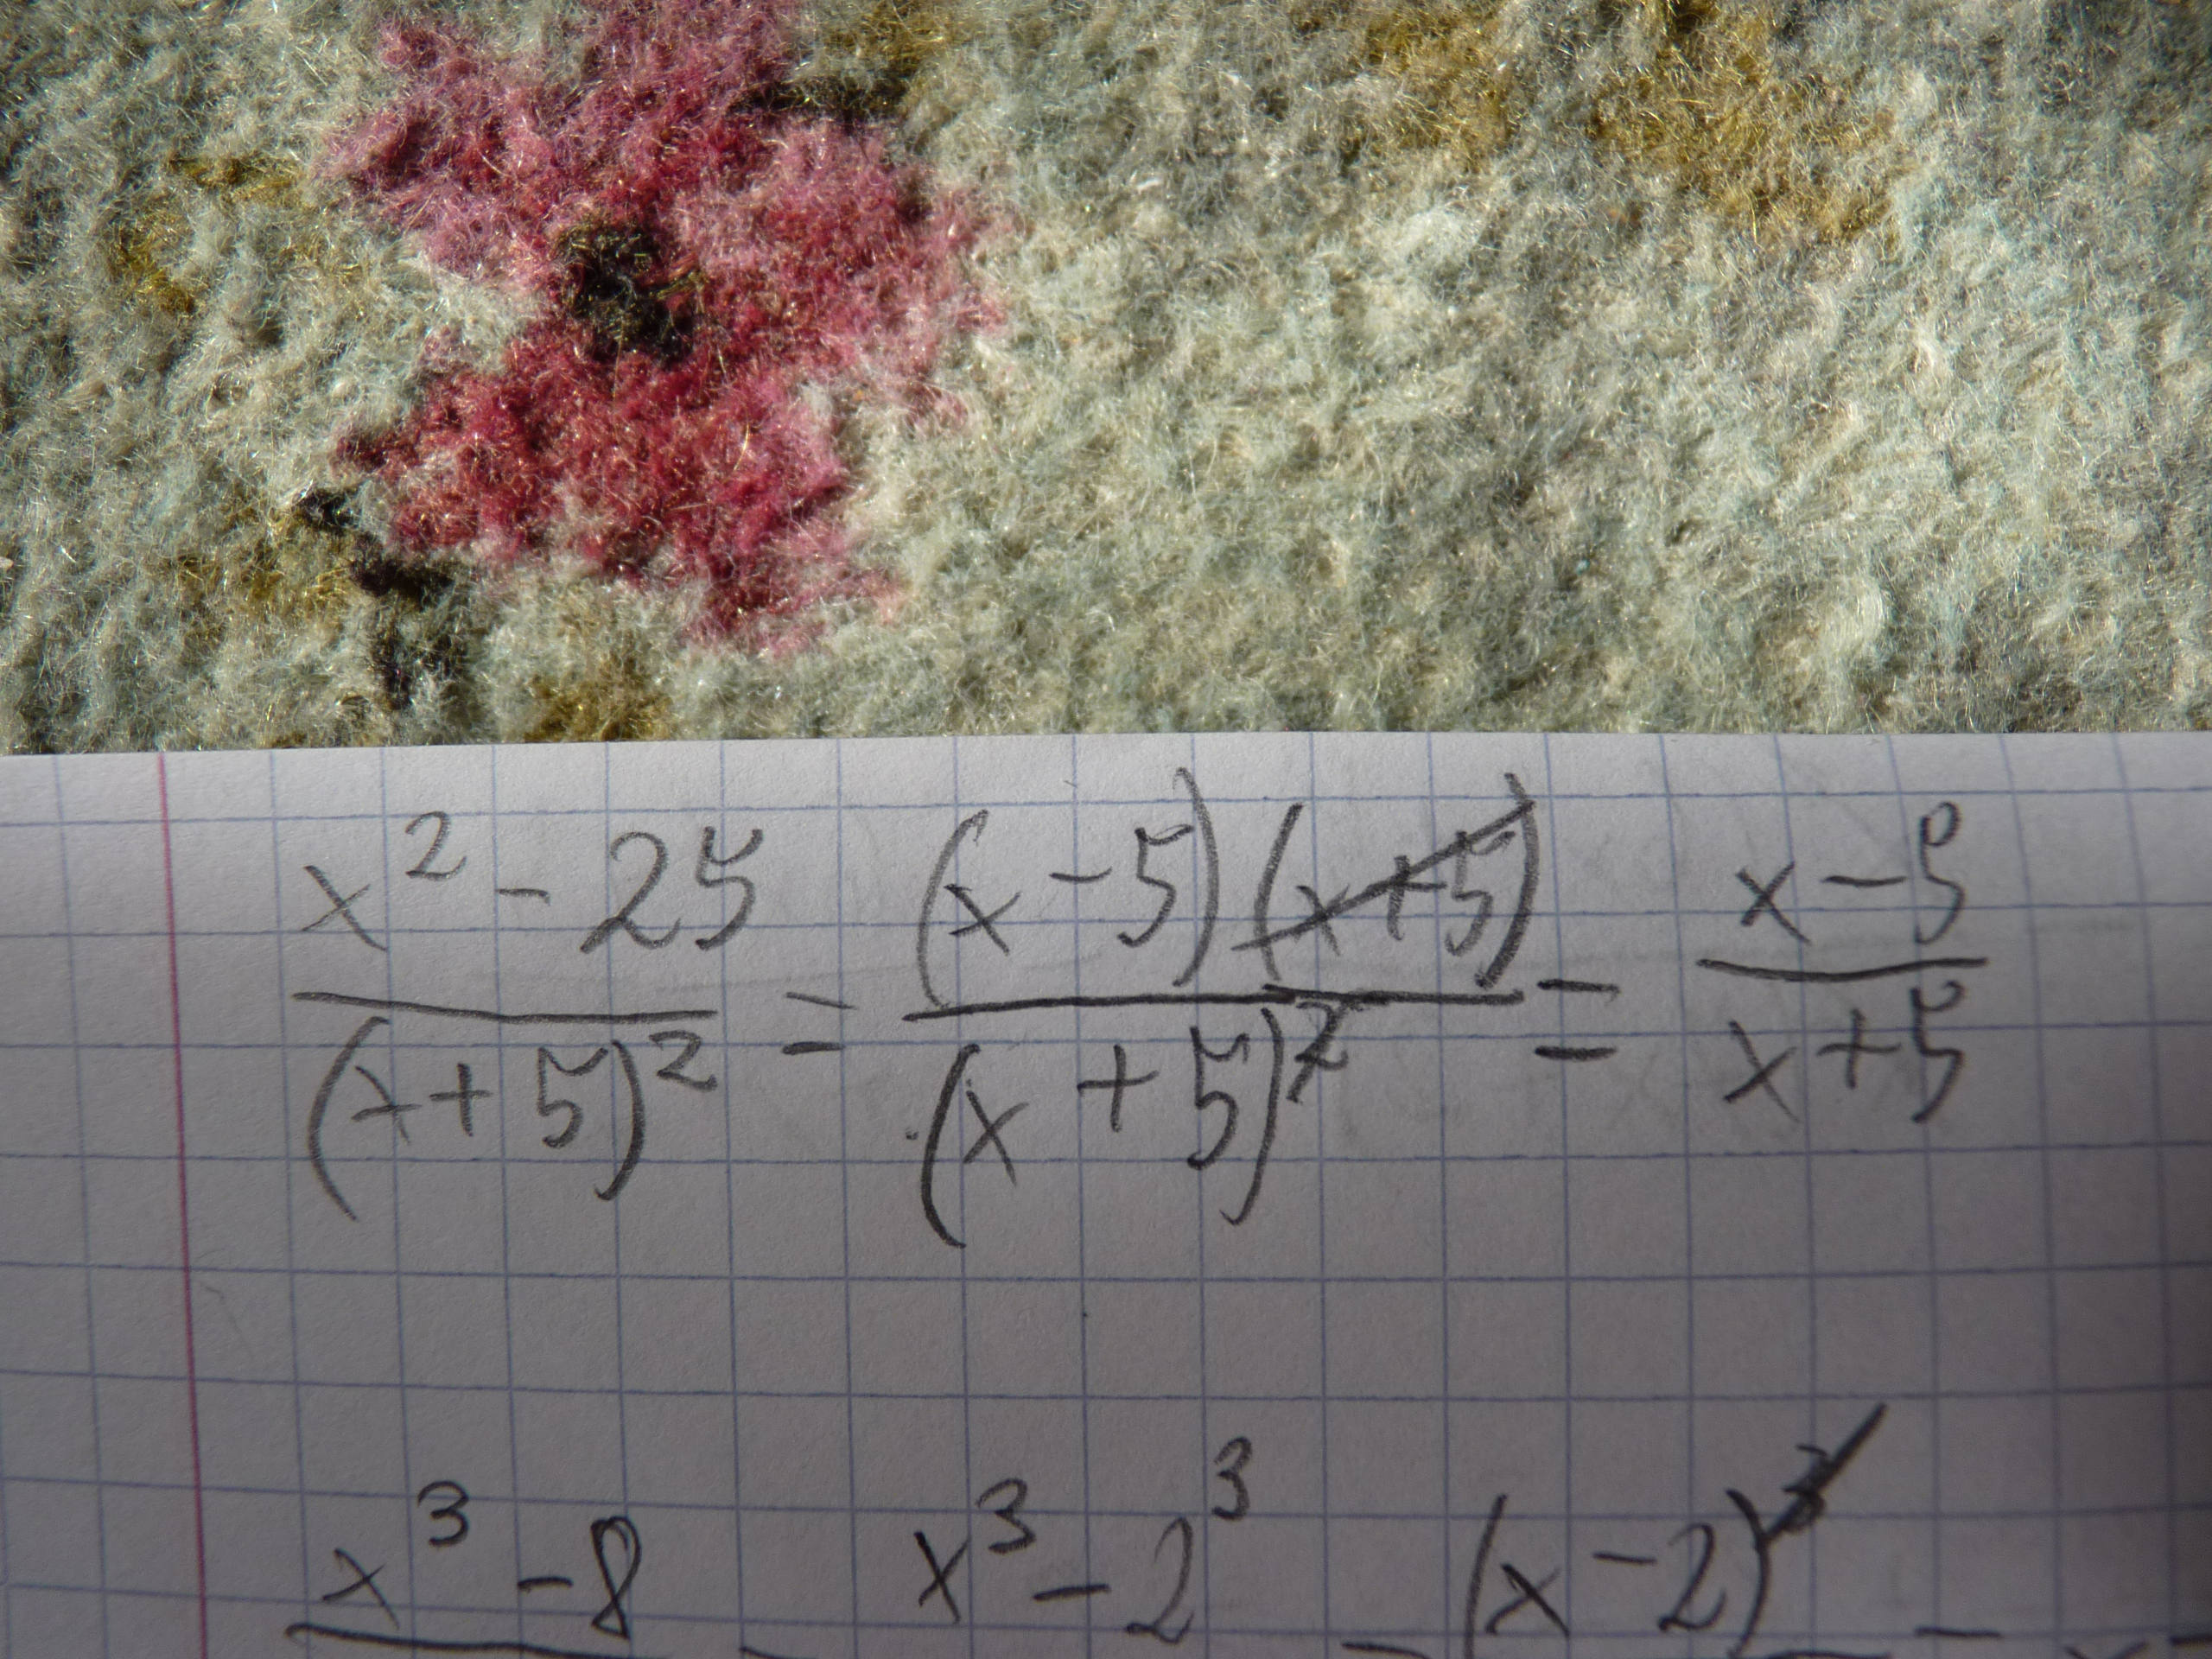 x² - 25 / (x+5)² = (x-5)(x+5) / (x+5)² = x-5 / x+5
x³ - 8 = x³ - 2³ = (x-2)³ =